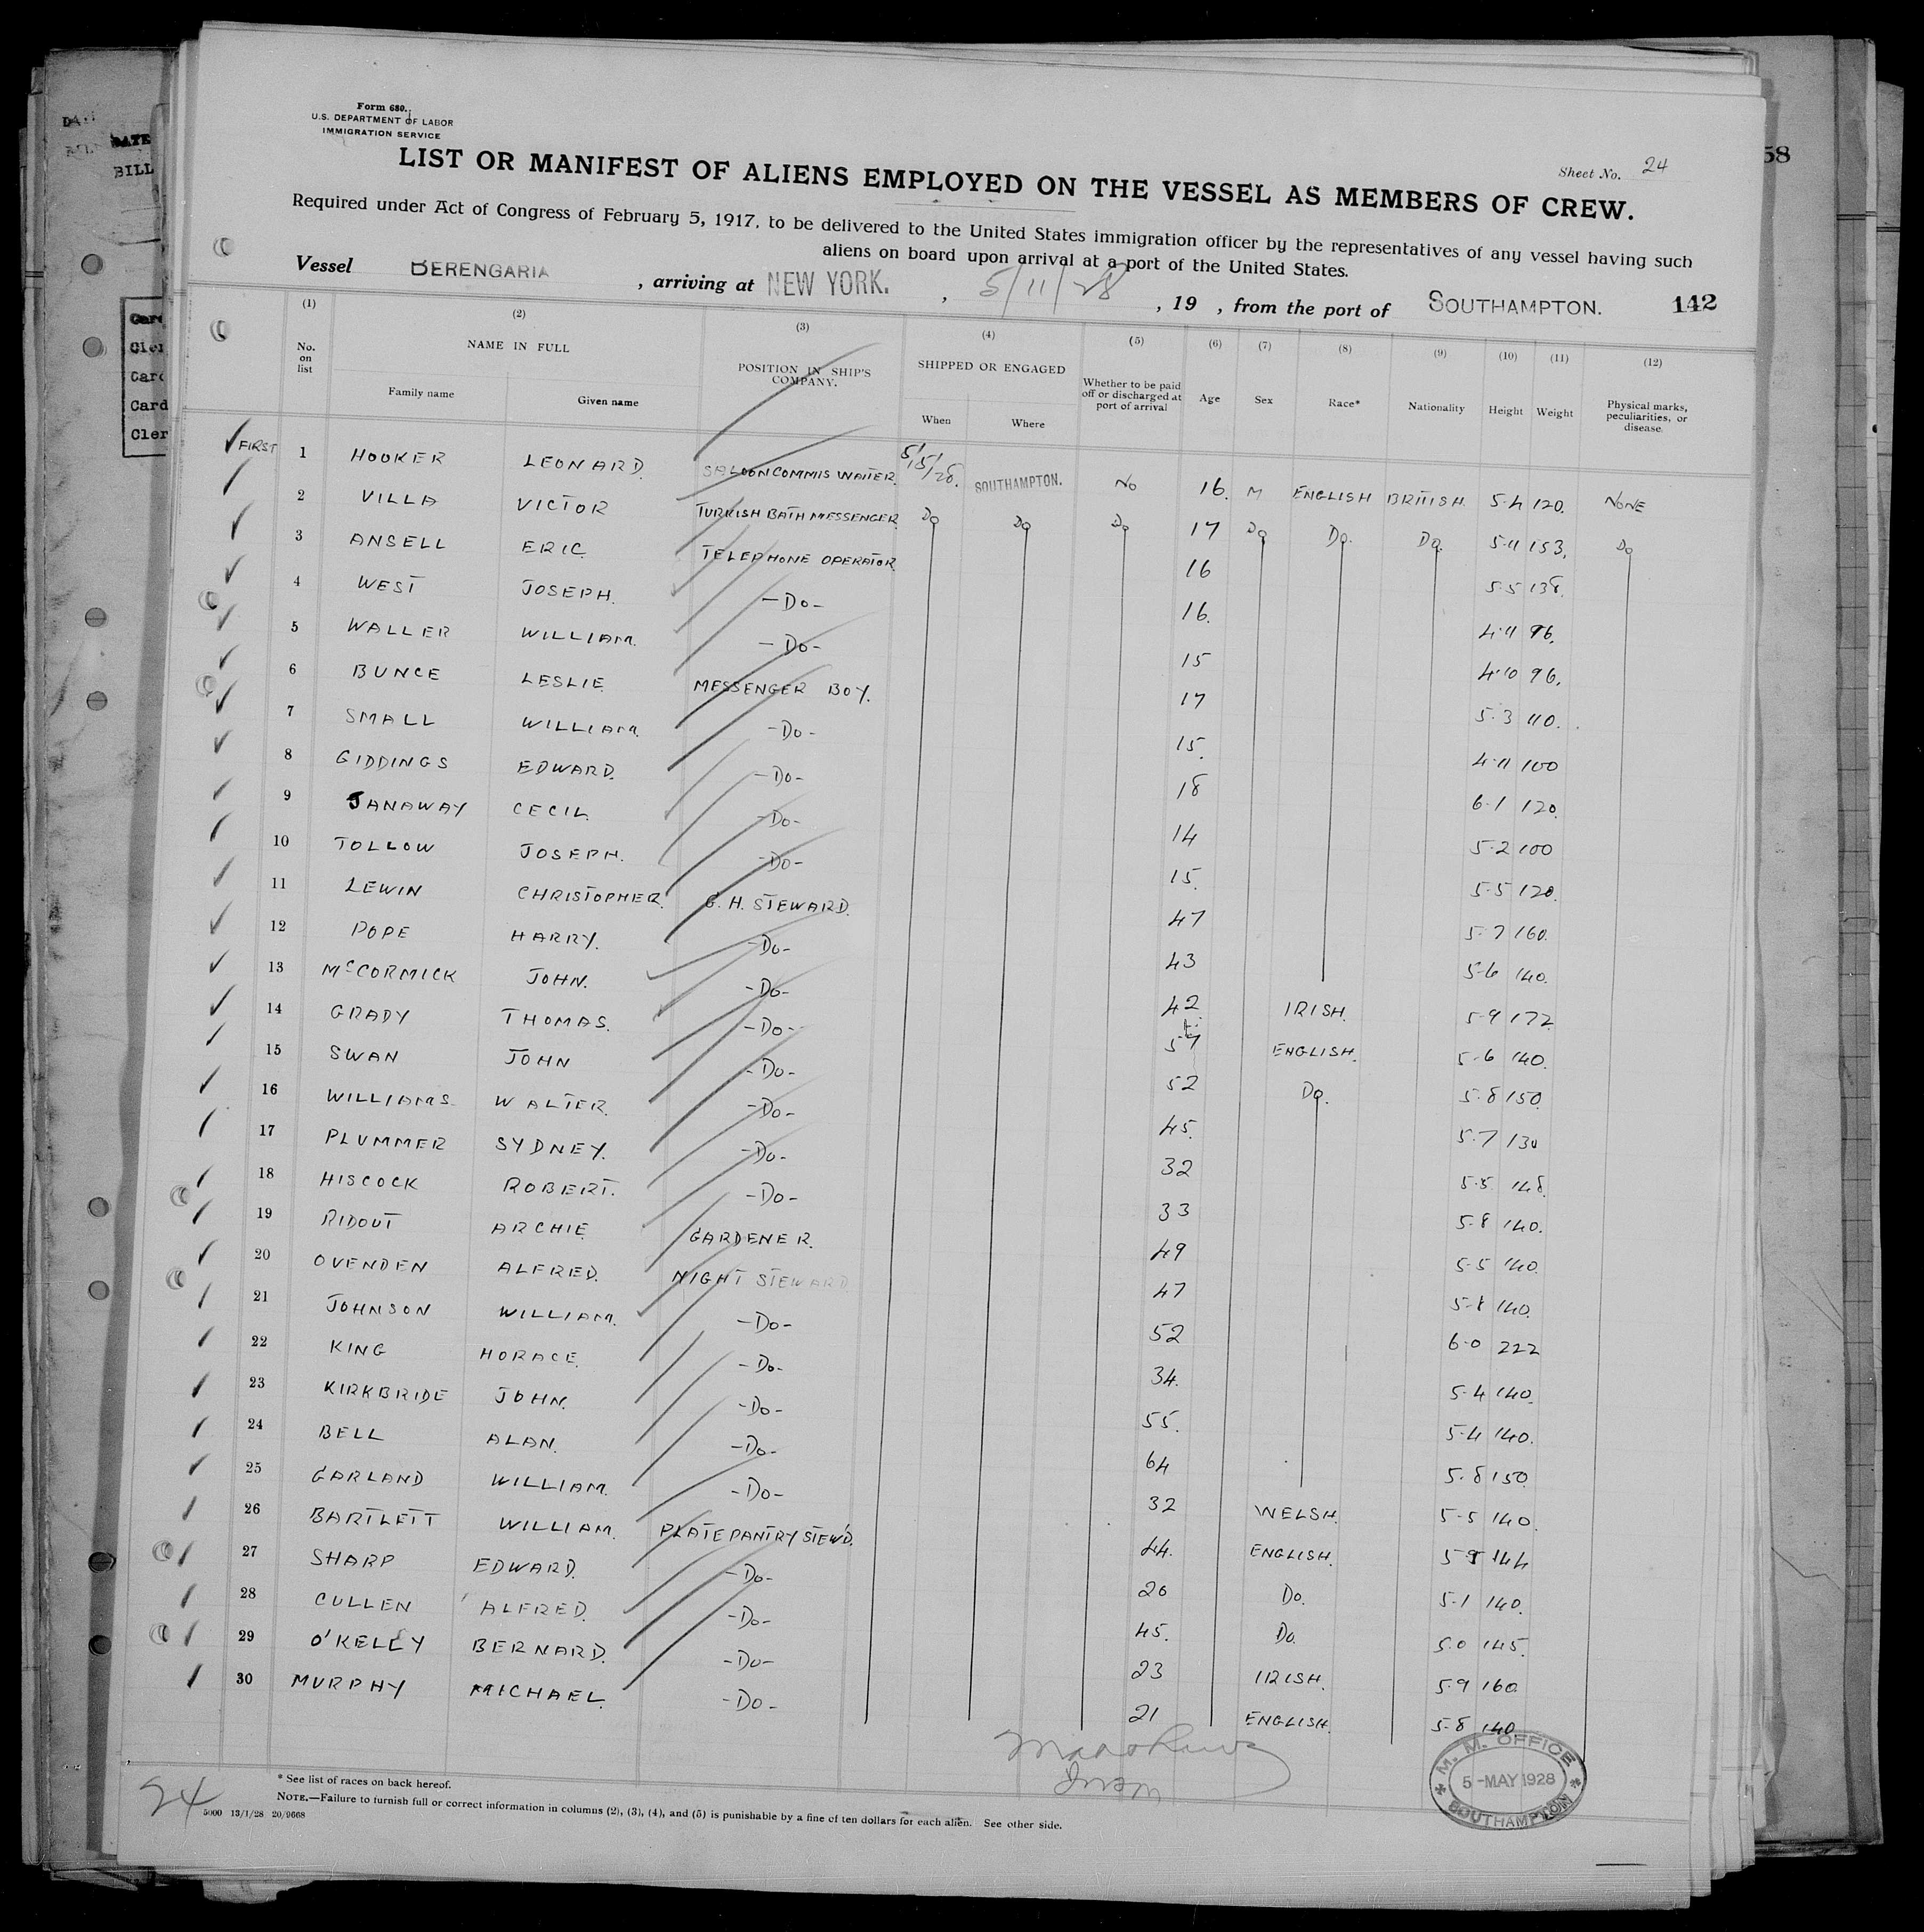 Form 680.
U.S. DEPARTMENT OF LABOR
IMMIGRATION SERVICE
LIST OR MANIFEST OF ALIENS EMPLOYED ON THE VESSEL AS MEMBERS OF CREW.
Sheet No. 24
Required under Act of Congress of February 5, 1917, to be delivered to the United States immigration officer by the representatives of any vessel having such
aliens on board upon arrival at a port of the United States.
Vessel BERENGARIA, arriving at NEW YORK., 5/11/28, 19 , from the port of SOUTHAMPTON. 142
(1) (2) (3) (4) (5) (6) (7) (8) (9) (10) (11) (12)
No. on list NAME IN FULL Family name Given name POSITION IN SHIP'S COMPANY. SHIPPED OR ENGAGED When Where Whether to be paid off or discharged at port of arrival Age Sex Race* Nationality Height Weight Physical marks, peculiarities, or disease.
FIRST 1 HOOKER LEONARD. SALOON COMMIS WAITER. 5/5/28. SOUTHAMPTON. NO 16. M ENGLISH BRITISH. 5-4 120. NONE
2 VILLA VICTOR TURKISH BATH MESSENGER Do Do Do 17 Do Do. Do. 5-11 153. Do
3 ANSELL ERIC. TELEPHONE OPERATOR. 16 5-5 138.
4 WEST JOSEPH. -Do- 16. 4-11 96.
5 WALLER WILLIAM. -Do- 15 4-10 96.
6 BUNCE LESLIE. MESSENGER BOY. 17 5-3 110.
7 SMALL WILLIAM. -Do- 15. 4-11 100
8 GIDDINGS EDWARD. -Do- 18 6-1 120.
9 JANAWAY CECIL. -Do- 14 5-2 100
10 TOLLOW JOSEPH. -Do- 15. 5-5 120.
11 LEWIN CHRISTOPHER. G.H. STEWARD. 47 5-7 160.
12 POPE HARRY. -Do- 43 5-6 140.
13 McCORMICK JOHN. -Do- 42 IRISH. 5-9 172
14 GRADY THOMAS. -Do- 57 ENGLISH. 5-6 140.
15 SWAN JOHN -Do- 52 Do. 5-8 150.
16 WILLIAMS. WALTER. -Do- 45. 5-7 130
17 PLUMMER SYDNEY. -Do- 32 5-5 148.
18 HISCOCK ROBERT. -Do- 33 5-8 140.
19 RIDOUT ARCHIE GARDENER. 49 5-5 140.
20 OVENDEN ALFRED. NIGHT STEWARD 47 5-8 140.
21 JOHNSON WILLIAM. -Do- 52 6-0 222
22 KING HORACE. -Do- 34. 5-4 140.
23 KIRKBRIDE JOHN. -Do- 55. 5-4 140.
24 BELL ALAN. -Do- 64 5-8 150.
25 GARLAND WILLIAM. -Do- 32 WELSH. 5-5 140.
26 BARTLETT WILLIAM. PLATE PANTRY STEW'D. 44. ENGLISH. 5-9 144
27 SHARP EDWARD. -Do- 20 Do. 5-1 140.
28 CULLEN ALFRED. -Do- 45. Do. 5-0 145.
29 O'KELLY BERNARD. -Do- 23 IRISH. 5-9 160.
30 MURPHY MICHAEL. -Do- 21 ENGLISH. 5-8 140
M. M. OFFICE
5-MAY 1928
SOUTHAMPTON
* See list of races on back hereof.
NOTE.—Failure to furnish full or correct information in columns (2), (3), (4), and (5) is punishable by a fine of ten dollars for each alien. See other side.
24
5000 13/1/28 20/9668
58
DATE
BILL
Card
Cler
Card
Card
Cler